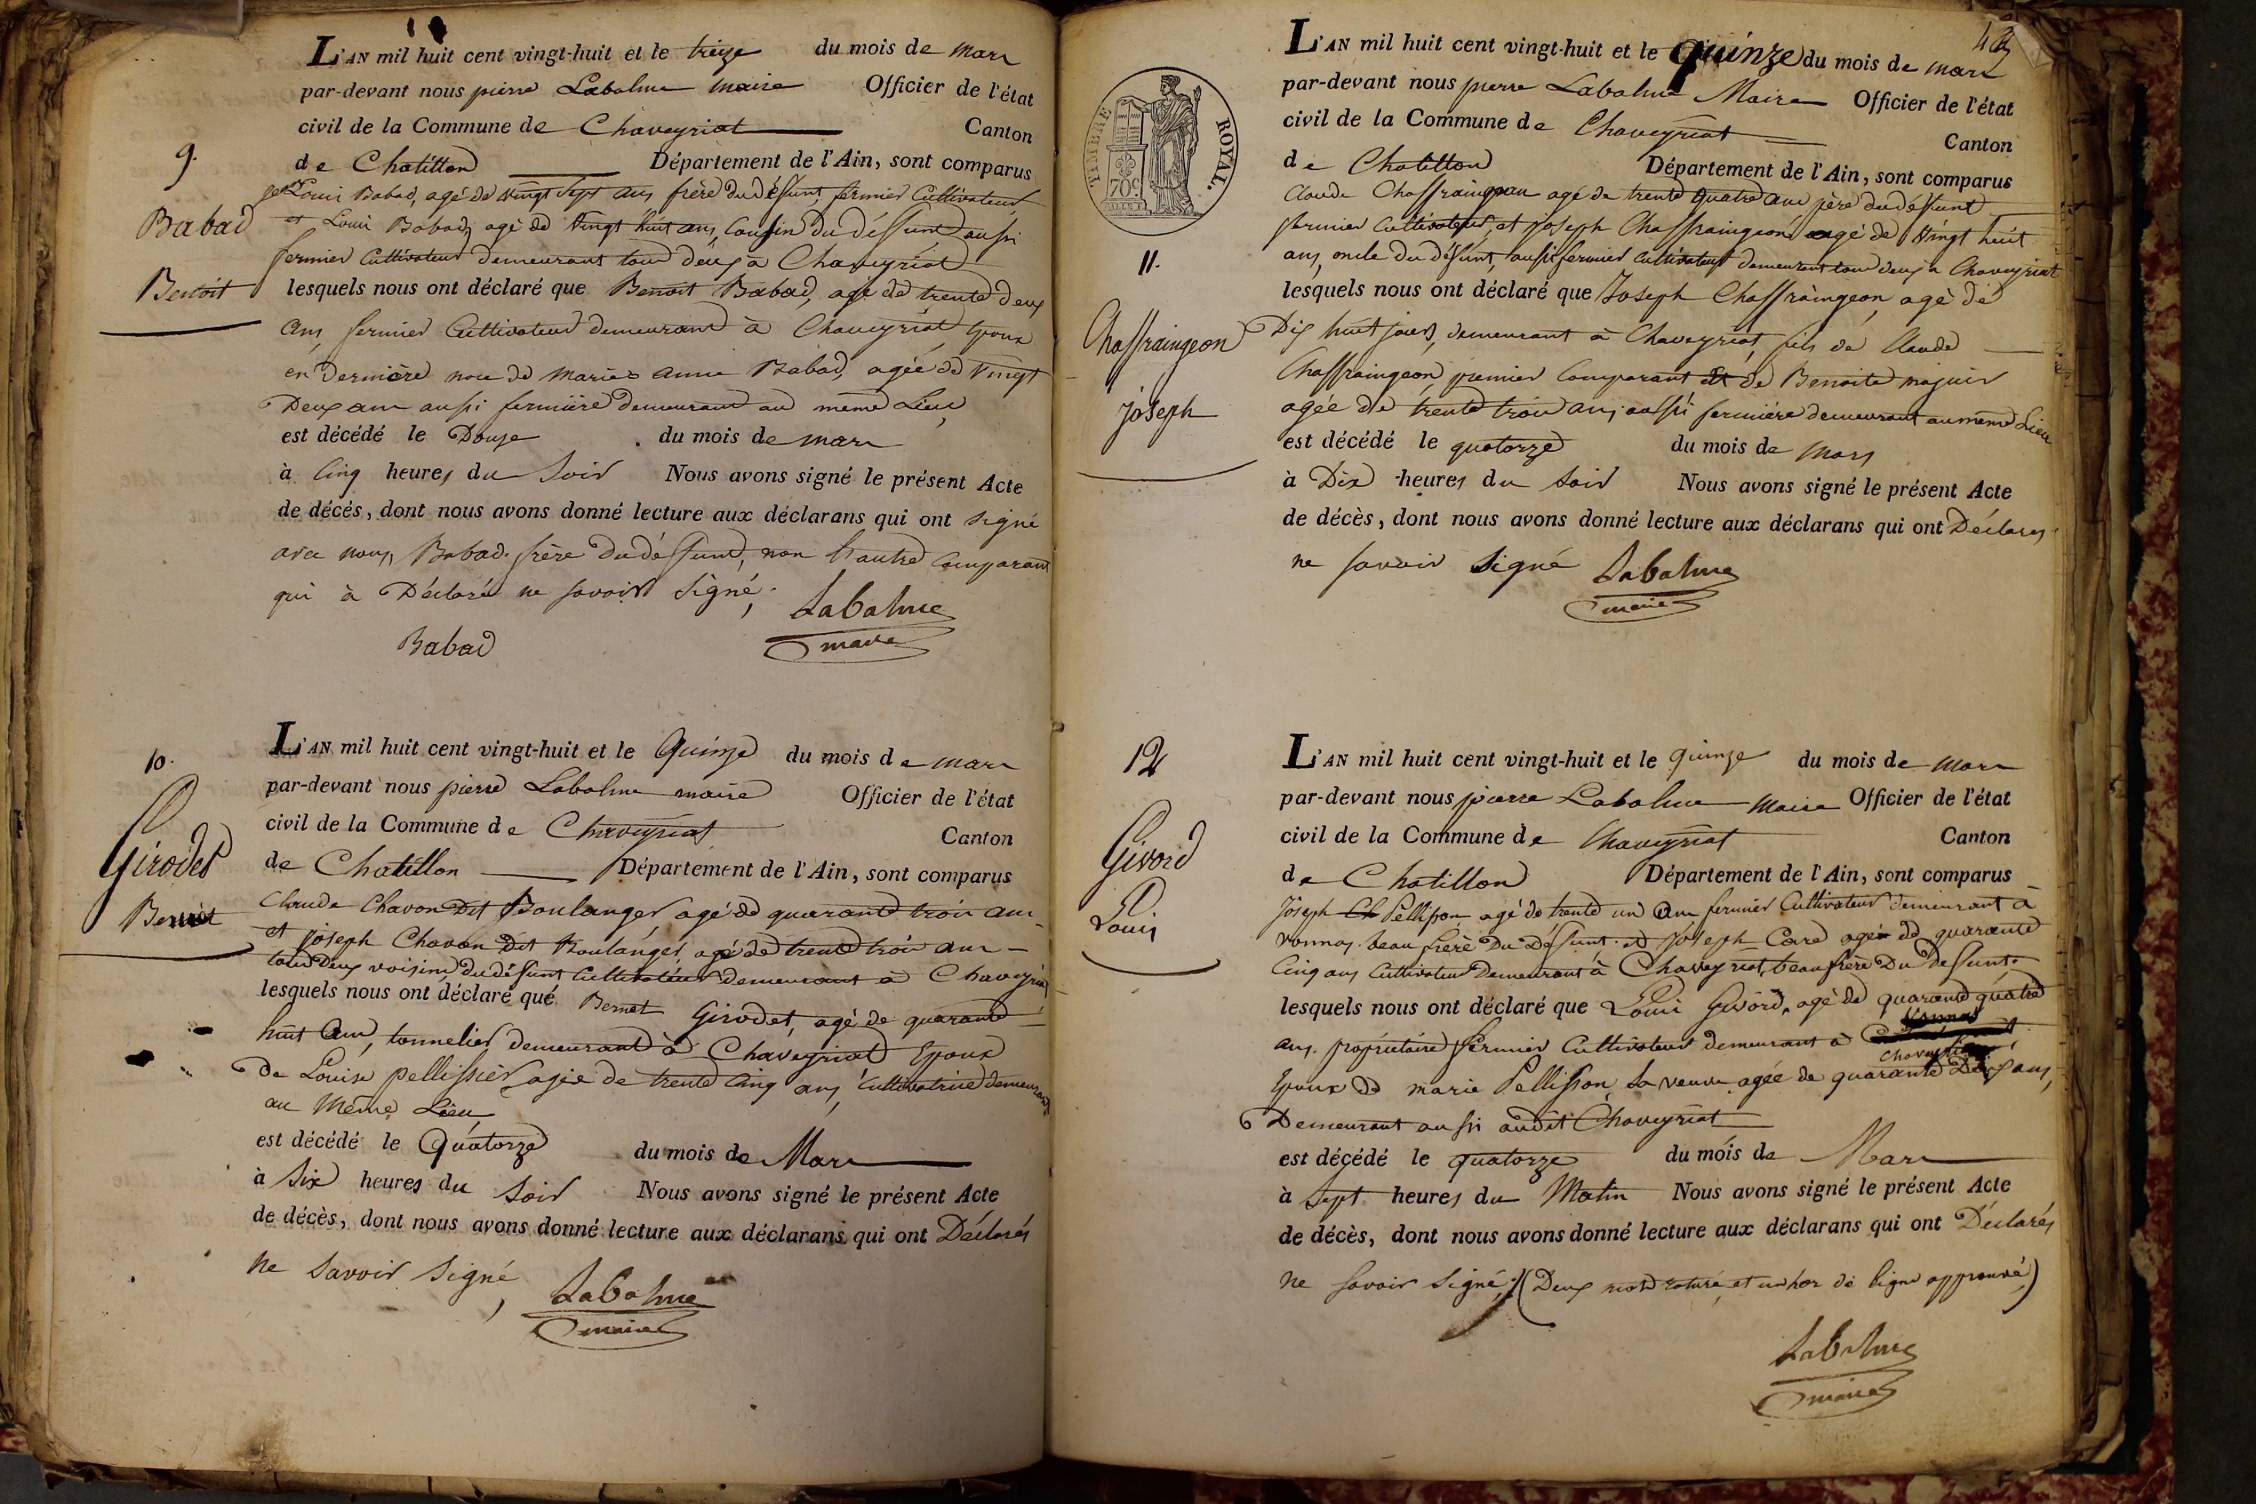 L'AN mil huit cent vingt-huit et le treize du mois de mars
par-devant nous pierre Labalme maire Officier de l'état
civil de la Commune de Chaveyriat Canton
de Chatillon Département de l'Ain, sont comparus
9.
Babad
Benoit
Louis Babad, agé de vingt Sept ans frère du défunt, fermier Cultivateur
et Louis Babad, agé de Vingt huit ans, Cousin du défunt aussi
fermier Cultivateur demeurant tous deux à Chaveyriat
lesquels nous ont déclaré que Benoit Babad, agé de trente deux
ans, fermier Cultivateur demeurant à Chaveyriat, Epoux
en dernière noce de Marie anne Babad, agée de Vingt
Deux ans aussi fermière demeurant au même Lieu,
est décédé le Douze du mois de mars
à Cinq heures du Soir Nous avons signé le présent Acte
de décés, dont nous avons donné lecture aux déclarans qui ont signé
avec nous, Babad frère Du défunt, non l'autre Comparant
qui à Déclaré ne savoir Signé.
Labalme
maire
Babad
10.
Girodet
Benoit
L'AN mil huit cent vingt-huit et le Quinze du mois de mars
par-devant nous pierre Labalme maire Officier de l'état
civil de la Commune de Chaveyriat Canton
de Chatillon Département de l'Ain, sont comparus
Claude Chavon Dit Boulanger agé de quarante trois ans
et Joseph Chavon Dit Boulanger, agé de trente trois ans
tous Deux voisins du défunt Cultivateur demeurant à Chaveyriat
lesquels nous ont déclaré que Benoit Girodet, agé de quarante
huit ans, tonnelier demeurant à Chaveyriat Epoux
De Louise pellissier agée de trente Cinq ans, Cultivatrice demeurant
au Même Lieu,
est décédé le Quatorze du mois de Mars
à Six heures du Soir Nous avons signé le présent Acte
de décès, dont nous avons donné lecture aux déclarans qui ont Déclarés
ne Savoir Signé,
Labalme
maire
TIMBRE ROYAL.
70c
L'AN mil huit cent vingt-huit et le quinze du mois de mars
par-devant nous pierre Labalme Maire Officier de l'état
civil de la Commune de Chaveyriat Canton
de Chatillon Département de l'Ain, sont comparus
11.
Chaffraingeon
Joseph
Claude Chaffraingeon agé de trente quatre ans père du défunt
fermier Cultivateur, et Joseph Chaffraingeon, agé de Vingt huit
ans, oncle du défunt, aussi fermier Cultivateur demeurant tous deux à Chaveyriat
lesquels nous ont déclaré que Joseph Chaffraingeon, agé de
Dix huit jours, demeurant à Chaveyriat, fils de Claude
Chaffraingeon, premier Comparant et de Benoite
agée de trente trois ans, aussi fermière demeurant au même Lieu
est décédé le quatorze du mois de mars
à Dix heures du Soir Nous avons signé le présent Acte
de décès, dont nous avons donné lecture aux déclarans qui ont Déclarés
ne savoir Signé
Labalme
maire
12
Givord
Louis
L'AN mil huit cent vingt-huit et le quinze du mois de mars
par-devant nous pierre Labalme Maire Officier de l'état
civil de la Commune de Chaveyriat Canton
de Chatillon Département de l'Ain, sont comparus
Joseph Pellisson agé de trente un ans fermier Cultivateur demeurant à
Vonnas, beau frère Du Défunt et Joseph Caré agé de quarante
Cinq ans Cultivateur Demeurant à Chaveyriat, beau frère Du Défunt
lesquels nous ont déclaré que Louis Givord, agé de quarante quatre
ans propriétaire fermier Cultivateur demeurant à
Chaveyriat
Epoux de marie Pellisson, Sa veuve agée de quarante Deux ans,
Demeurant aussi audit Chaveyriat
est décédé le quatorze du mois de Mars
à Sept heures du Matin Nous avons signé le présent Acte
de décès, dont nous avons donné lecture aux déclarans qui ont Déclarés
ne savoir Signé, (Deux mots raturé, et un hor de ligne approuvé,)
Labalme
maire